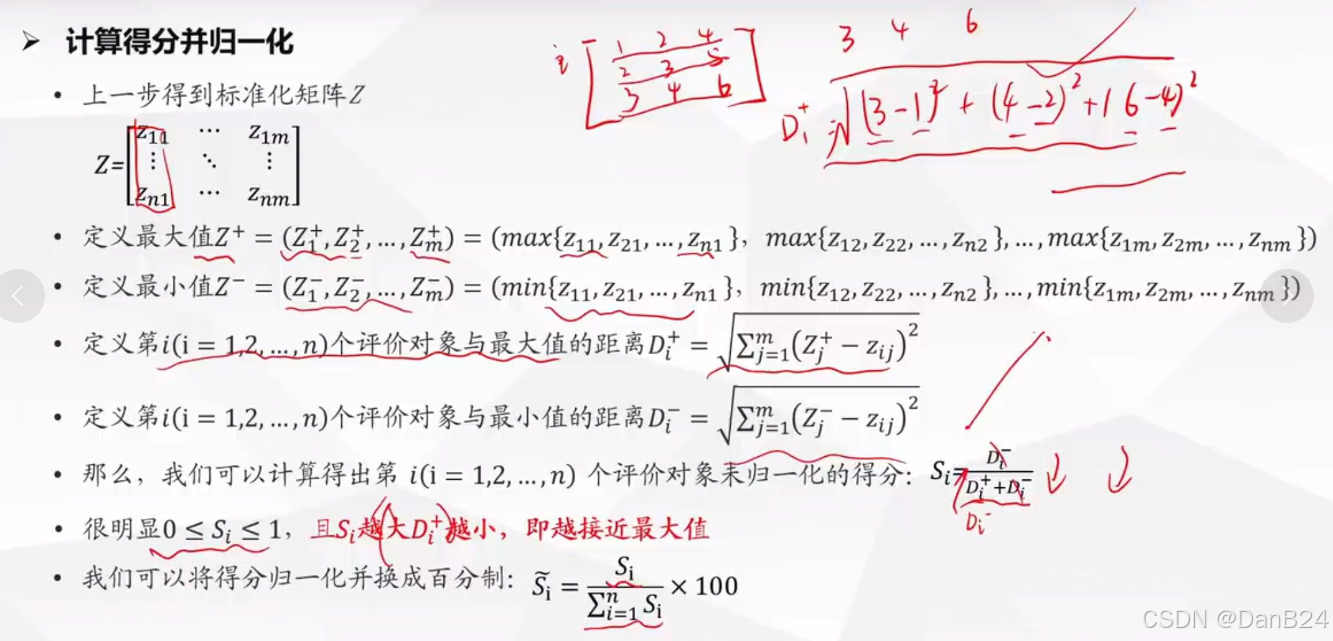 ➤ 计算得分并归一化
• 上一步得到标准化矩阵Z
Z=[z11 ⋯ z1m
⋮ ⋱ ⋮
zn1 ⋯ znm]
i [1 2 4
2 3 5
3 4 6]
3 4 6
Di+ √(3-1)² + (4-2)² + (6-4)²
• 定义最大值Z⁺ = (Z₁⁺, Z₂⁺, ..., Zₘ⁺) = (max{z₁₁, z₂₁, ..., zₙ₁}，max{z₁₂, z₂₂, ..., zₙ₂}, ..., max{z₁ₘ, z₂ₘ, ..., zₙₘ})
• 定义最小值Z⁻ = (Z₁⁻, Z₂⁻, ..., Zₘ⁻) = (min{z₁₁, z₂₁, ..., zₙ₁}，min{z₁₂, z₂₂, ..., zₙ₂}, ..., min{z₁ₘ, z₂ₘ, ..., zₙₘ})
• 定义第i(i = 1,2, ..., n)个评价对象与最大值的距离Dᵢ⁺ = √∑ⱼ₌₁ᵐ(Zⱼ⁺ − zᵢⱼ)²
• 定义第i(i = 1,2, ..., n)个评价对象与最小值的距离Dᵢ⁻ = √∑ⱼ₌₁ᵐ(Zⱼ⁻ − zᵢⱼ)²
• 那么，我们可以计算得出第 i(i = 1,2, ..., n) 个评价对象未归一化的得分：Sᵢ= Dᵢ⁻/(Dᵢ⁺+Dᵢ⁻)
Dᵢ⁻
• 很明显0 ≤ Sᵢ ≤ 1，且Sᵢ越大Dᵢ⁺越小，即越接近最大值
• 我们可以将得分归一化并换成百分制：S̃ᵢ = Sᵢ/∑ᵢ₌₁ⁿ Sᵢ × 100
CSDN @DanB24